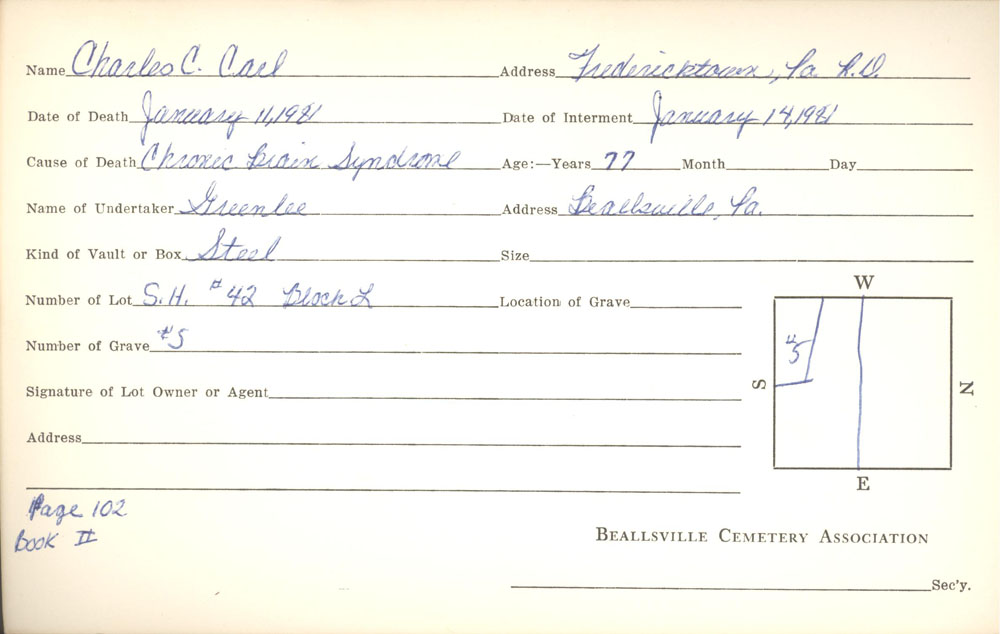 Name Charles C. Carl Address Fredericktown, Pa. R.D.
Date of Death January 11, 1981 Date of Interment January 14, 1981
Cause of Death Chronic Brain Syndrome Age:—Years 77 Month Day
Name of Undertaker Greenlee Address Beallsville, Pa.
Kind of Vault or Box Steel Size
Number of Lot S.H. #42 Block L Location of Grave
W
Number of Grave #5
#5
S
N
Signature of Lot Owner or Agent
Address
E
Page 102
Book II
Beallsville Cemetery Association
Sec'y.